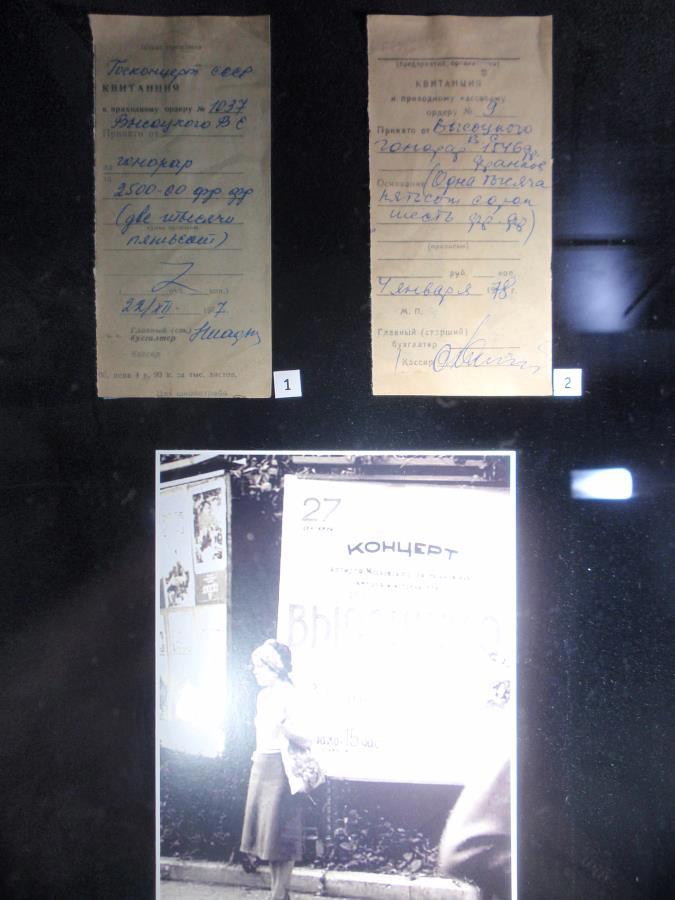 Госконцерт ссср
КВИТАНЦИЯ
к приходному ордеру № 1037
Принято от Высоцкого В С
гонорар
2500-00 фр фр
(две тысячи
пятьсот)
22/XII 7 г.
Главный (ст.)
бухгалтер
Кассир
цена 4 р. 90 к. за тыс. листов.
1
(предприятие, организация)
КВИТАНЦИЯ
к приходному кассовому
ордеру № 9
Принято от Высоцкого
В С
гонорар 1546 фр.
франков
Основание (Одна тысяча
пятьсот сорок
шесть фр. фр)
(прописью)
руб. коп.
4 января 1978 г.
М. П.
Главный (старший)
бухгалтер
Кассир
2
27
КОНЦЕРТ
артиста Московского
ВЫСОЦКОГО
15